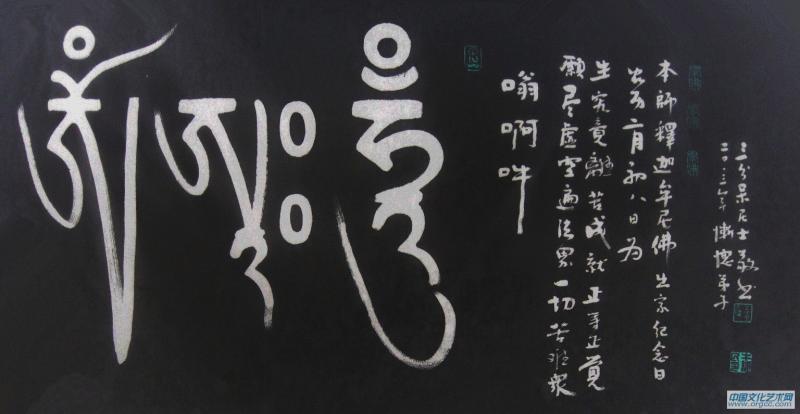 ༀ ཨཱཿ ཧཱུྃ
嗡啊吽
願尽虚空遍法界一切苦难衆
生究竟離苦成就正等正覺
农历二月初八日为
本師釋迦牟尼佛出家纪念日
二〇一三年慚愧弟子
居士敬书
中国文化艺术网
www.orgcc.com